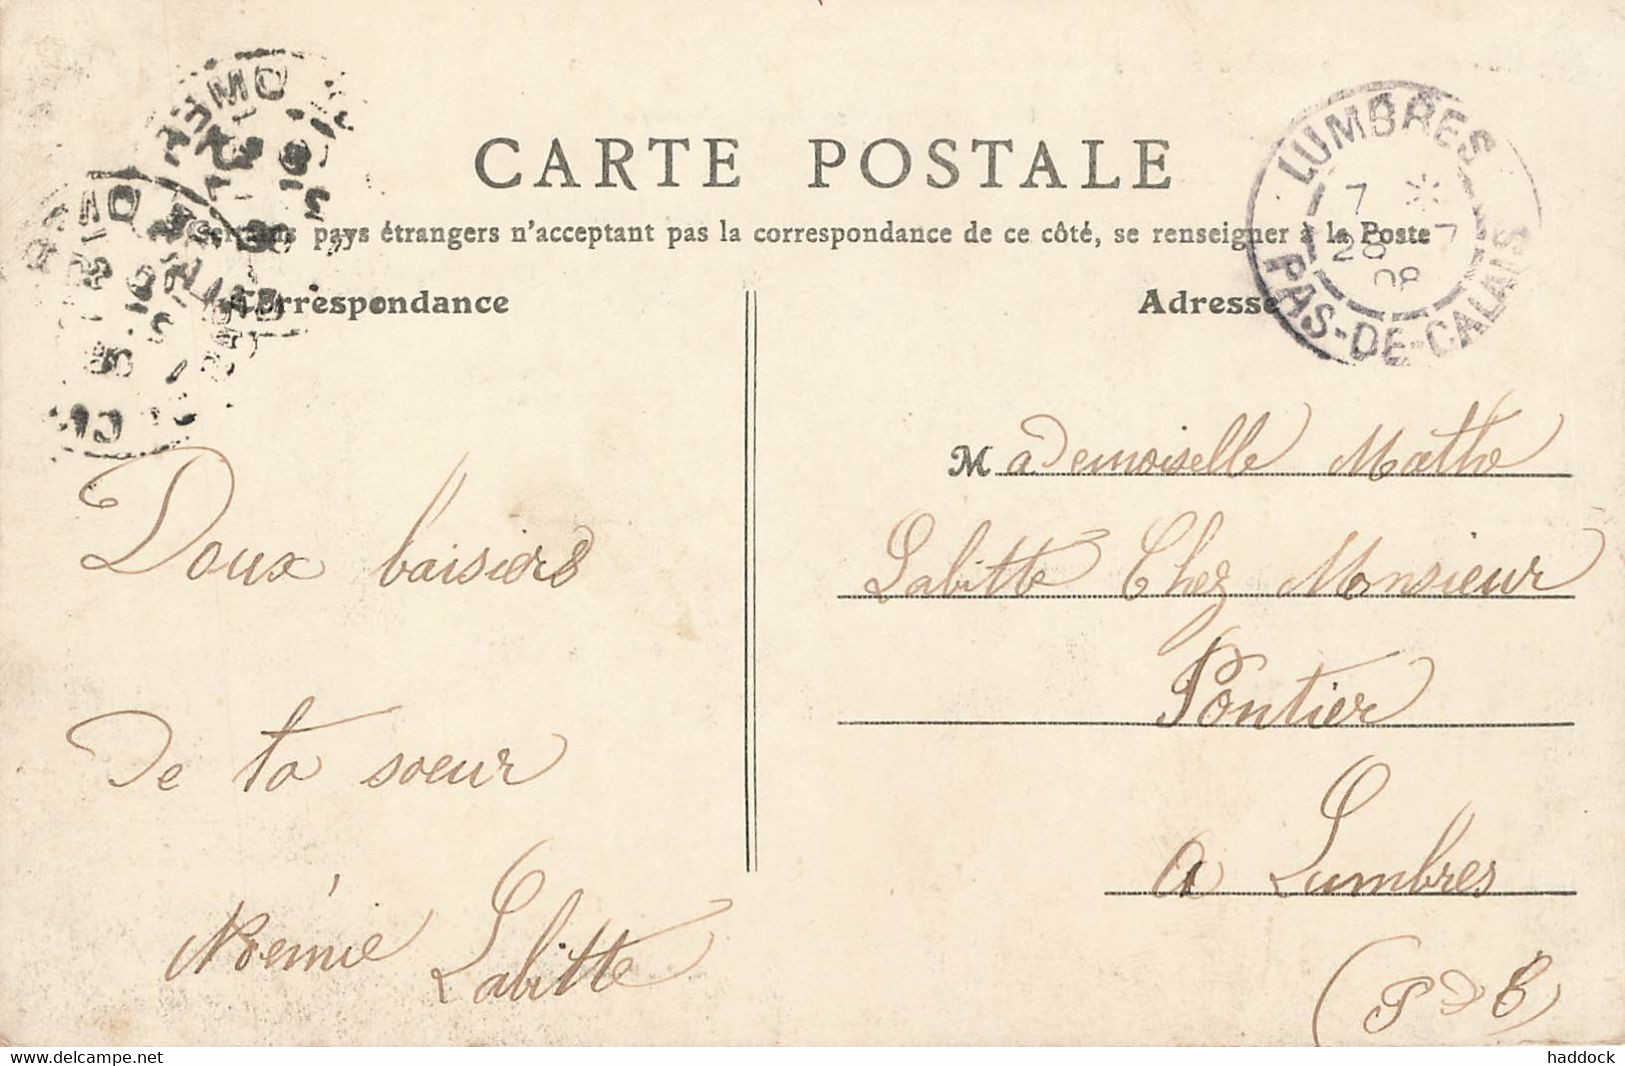 CARTE POSTALE
Certains pays étrangers n'acceptent pas la correspondance de ce côté, se renseigner à la Poste
Correspondance
Adresse
LUMBRES
7 *
28 7
08
PAS-DE-CALAIS
Doux baisers
De ta soeur
Noémie Labitte
Mademoiselle Mathe
Labitte Chez Monsieur
Pontier
a Lumbres
(P d C)
delcampe.net
haddock